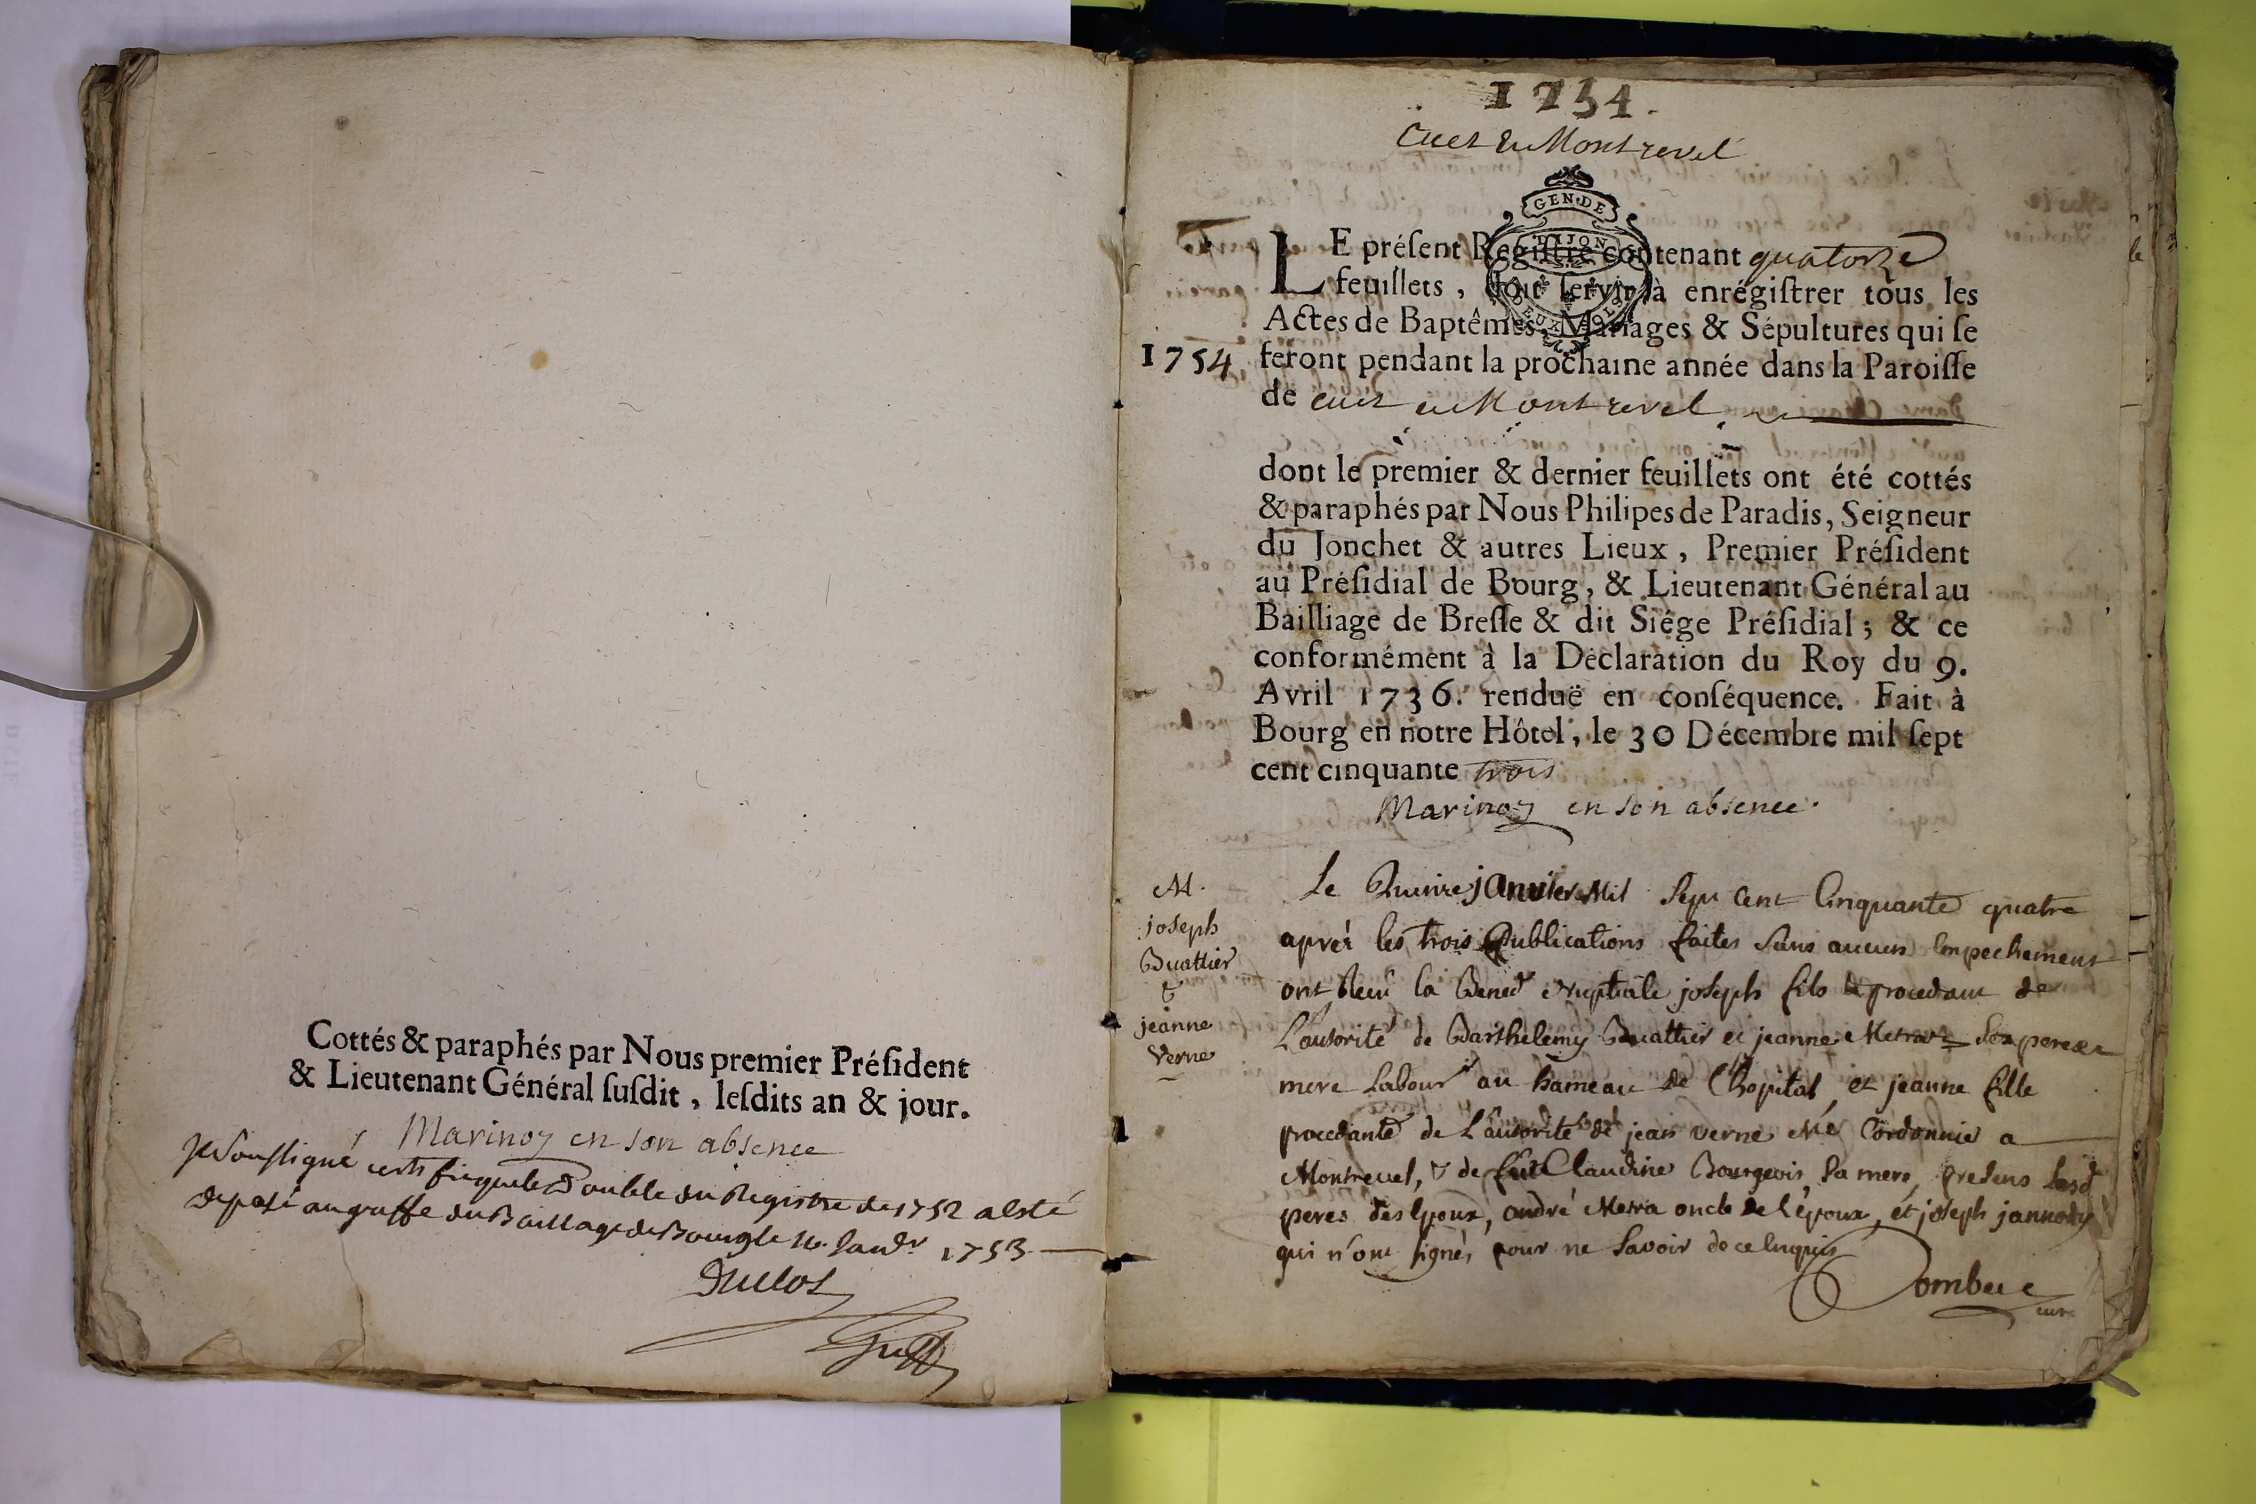 Cottés & paraphés par Nous premier Préſident
& Lieutenant Général ſuſdit, leſdits an & jour.
Marinoz en son absence
Je soussigné certifie que le Double du Registre de 1752 a esté
deposé au greffe du Baillage de Bourg le 16 Janvr 1753
Duclos
Greff
1754.
Cuet en Montrevel
GEN. DE
DIJON
LE préſent Regiſtre contenant quatorze
feuillets, doit ſervir à enrégiſtrer tous les
Actes de Baptêmes, Mariages & Sépultures qui ſe
1754 feront pendant la prochaine année dans la Paroiſſe
de cuet en Montrevel
dont le premier & dernier feuillets ont été cottés
& paraphés par Nous Philipes de Paradis, Seigneur
du Jonchet & autres Lieux, Premier Préſident
au Préſidial de Bourg, & Lieutenant Général au
Bailliage de Breſſe & dit Siége Préſidial; & ce
conformément à la Déclaration du Roy du 9.
Avril 1736. renduë en conſéquence. Fait à
Bourg en notre Hôtel, le 30 Décembre mil ſept
cent cinquante trois
Marinoz en son absence.
M.
joseph
Buattier
&
jeanne
Verne
Le Quinze janvier Mil Sept Cent Cinquante quatre
aprés les trois Publications faites Sans aucun Empechement
ont Receu la Bened Nuptiale joseph fils procedant de
L'autorité de Barthelemy Buattier et jeanne son pere et
mere Labourr au hameau de L'hopital, et jeanne fille
procedante de L'autorité de jean Verne Me Cordonnie a
Montrevel, & de fut Claudine Bourgeois Sa mere, presens Lesd
peres des Epoux, andré Merra oncle de l'époux, et joseph
qui n'ont signés pour ne Savoir de ce Enquis
curé